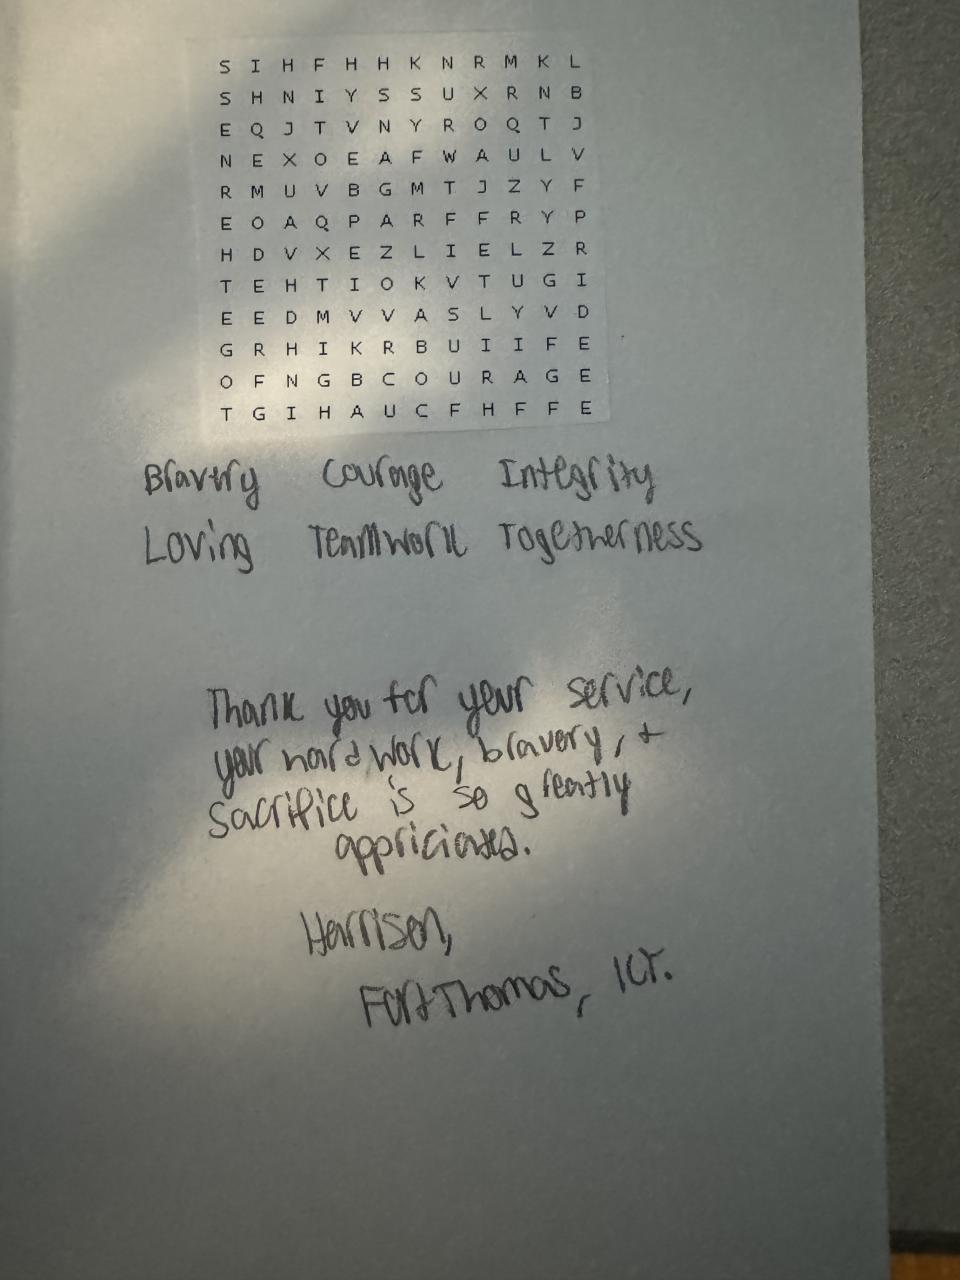 S I H F H H K N R M K L
S H N I Y S S U X R N B
E Q J T V N Y R O Q T J
N E X O E A F W A U L V
R M U V B G M T J Z Y F
E O A Q P A R F F R Y P
H D V X E Z L I E L Z R
T E H T I O K V T U G I
E E D M V V A S L Y V D
G R H I K R B U I I F E
O F N G B C O U R A G E
T G I H A U C F H F F E
Bravery Courage Integrity
Loving Teamwork Togetherness
Thank you for your service,
your hard work, bravery, +
sacrifice is so greatly
appriciated.
Harrison,
Fort Thomas, KY.